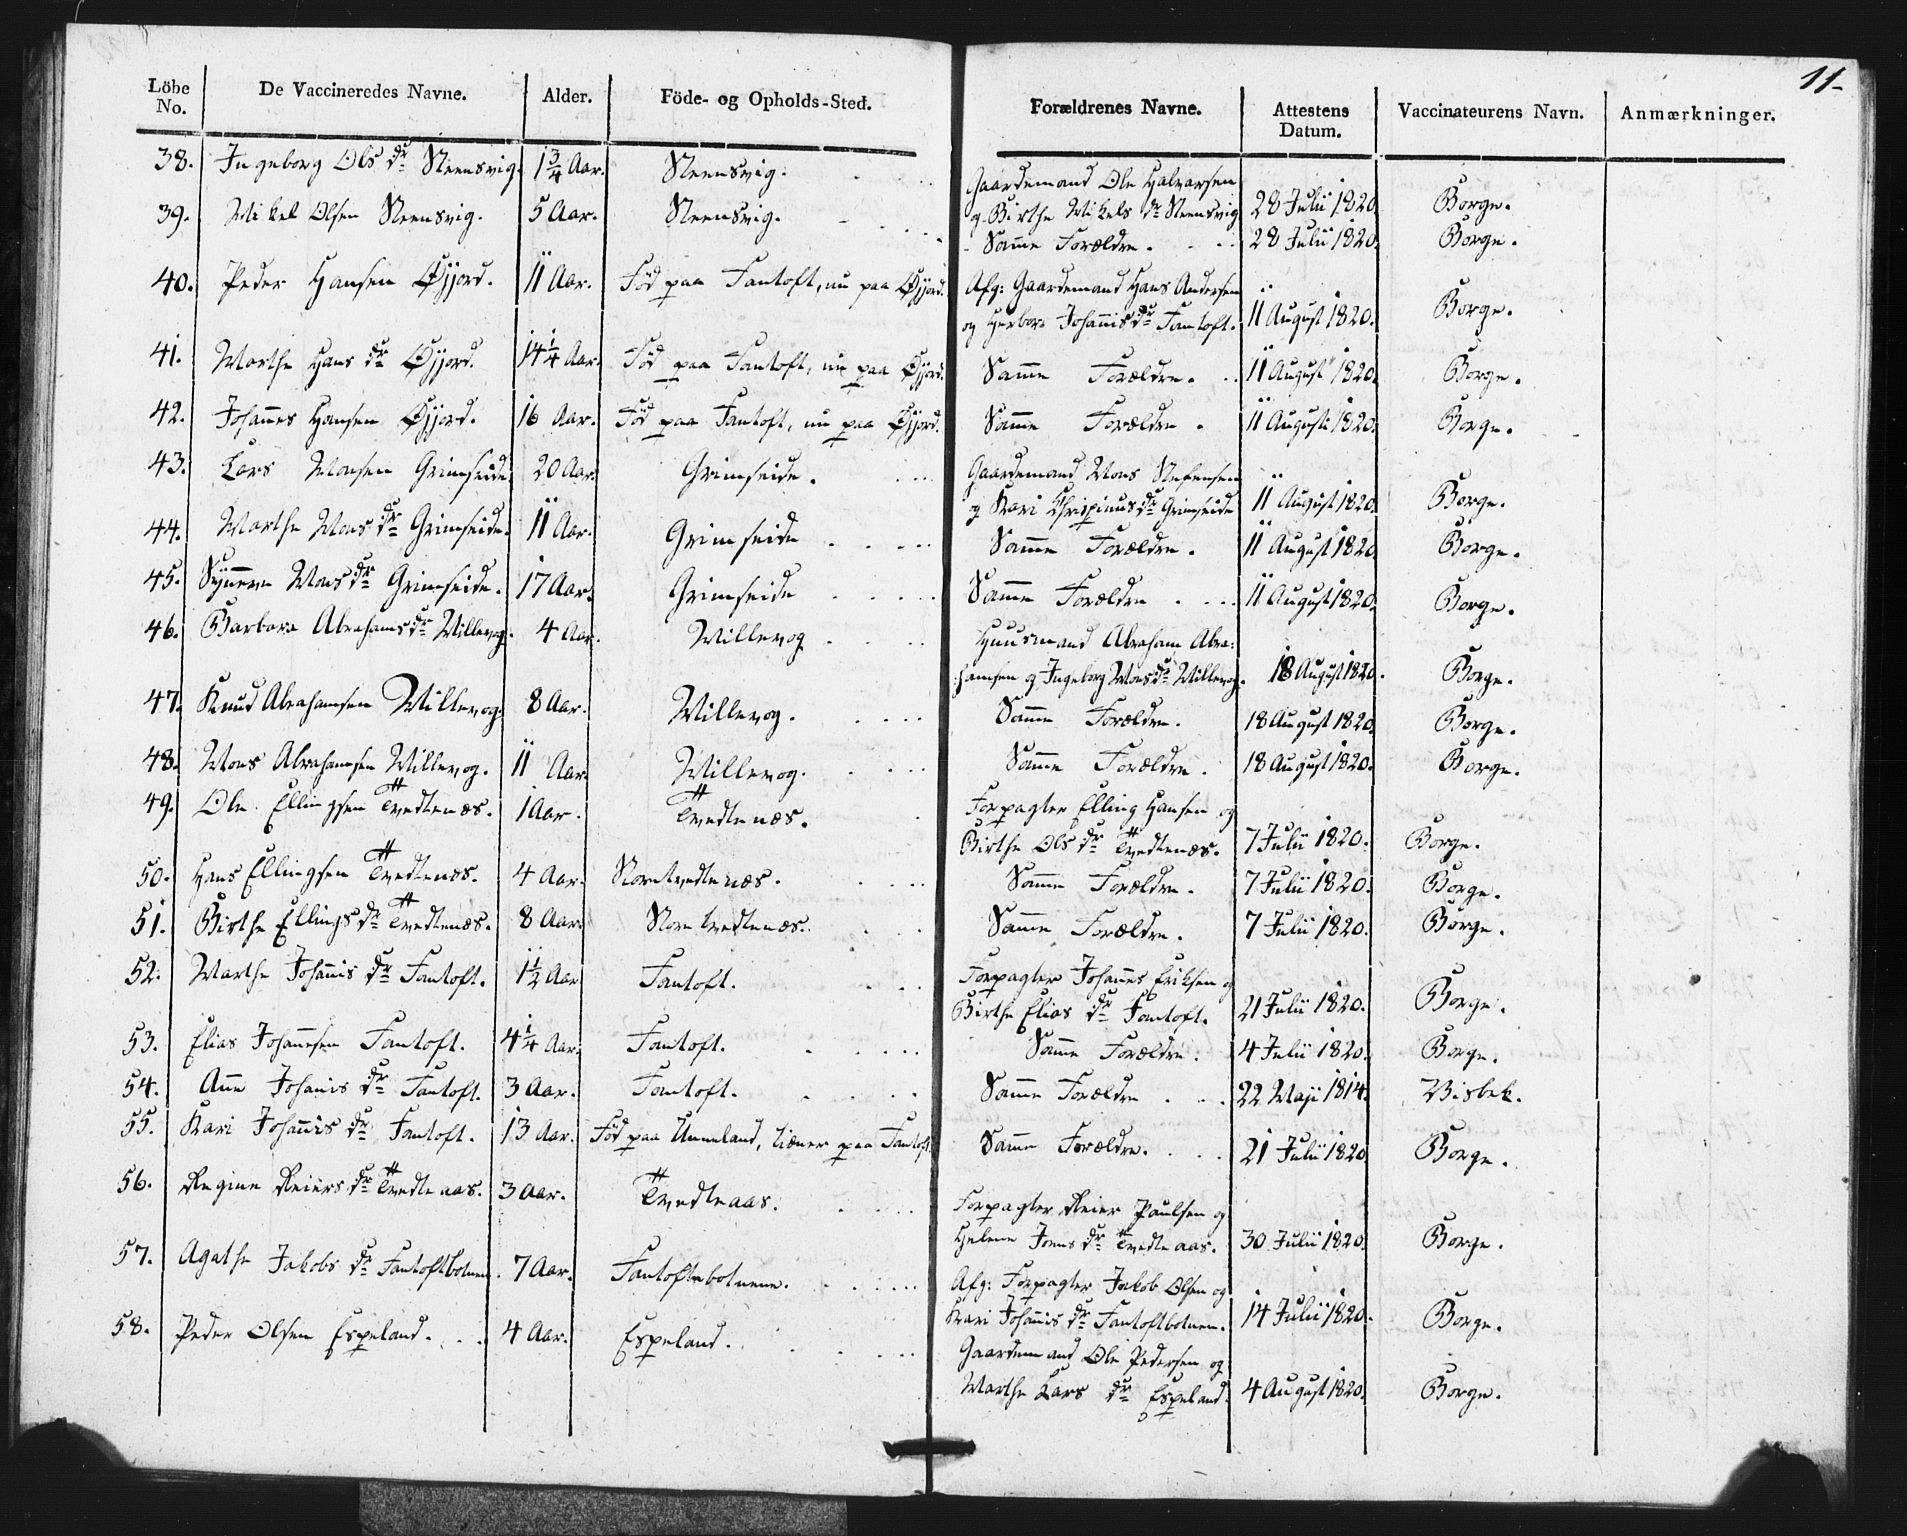 11.
Löbe No. De Vaccineredes Navne. Alder. Föde- og Opholds-Sted. Forældrenes Navne. Attestens Datum. Vaccinateurens Navn. Anmærkninger.
38. Ingeborg Ols dr Steensvig. 1 3/4 Aar. Steensvig. Gaardemand Ole Halvarsen
og Birthe Mikels dr Steensvig 28 Julii 1820. Borge.
39. Mikel Olsen Steensvig. 5 Aar. Steensvig. Samme Forældre. 28 Julii 1820. Borge.
40. Peder Hansen Øjjord. 11 Aar. Föd paa Fantoft, nu paa Øjjord. Afg: Gaardemand Hans Andersen
og Herbor Johannis dr Fantoft. 11 August 1820. Borge.
41. Marthe Hans dr Øjjord. 14 1/4 Aar. Föd paa Fantoft, nu paa Øjjord. Samme Forældre. 11 August 1820. Borge.
42. Johannes Hansen Øjjord. 16 Aar. Föd paa Fantoft, nu paa Øjjord. Samme Forældre. 11 August 1820. Borge.
43. Lars Monsen Grimseide. 20 Aar. Grimseide. Gaardemand Mons Stefensen
og Kari Chrispinus dr Grimseide 11 August 1820. Borge.
44. Marthe Mons dr Grimseide. 11 Aar. Grimseide Samme Forældre. 11 August 1820. Borge.
45. Synneve Mons dr Grimseide. 17 Aar. Grimseide Samme Forældre 11 August 1820. Borge.
46. Barbara Abrahams dr Millevog. 4 Aar. Millevog Huusmand Abraham Abra:
hamsen og Ingeborg Mons dr Millevog. 18 August 1820. Borge.
47. Knud Abrahamsen Millevog. 8 Aar. Millevog. Samme Forældre. 18 August 1820. Borge.
48. Mons Abrahamsen Millevog. 11 Aar. Millevog. Samme Forældre. 18 August 1820. Borge.
49. Ole Ellingsen Tvedtenæs. 1 Aar. Tvedtenæs. Forpagter Elling Hansen og
Birthe Ols dr Tvedtenæs. 7 Julii 1820. Borge.
50. Hans Ellingsen Tvedtenæs. 4 Aar. Storetvedtenæs. Samme Forældre. 7 Julii 1820. Borge.
51. Birthe Ellings dr Tvedtenæs. 8 Aar. Storetvedtenæs. Samme Forældre. 7 Julii 1820. Borge.
52. Marthe Johannis dr Fantoft. 1 1/2 Aar Fantoft. Forpagter Johannes Eriksen og
Birthe Elias dr Fantoft. 21 Julii 1820. Borge.
53. Elias Johannesen Fantoft. 4 1/4 Aar. Fantoft. Samme Forældre. 4 Julii 1820. Borge.
54. Anne Johannis dr Fantoft. 3 Aar. Fantoft. Samme Forældre 22 Maji 1814. Visbek.
55. Kari Johannis dr Fantoft. 13 Aar. Föd paa Unneland, tiæner paa Fantoft. Samme Forældre. 21 Julii 1820. Borge.
56. Regine Reiers dr Tvedteaas. 3 Aar. Tvedteaas. Forpagter Reier Paulsen og
Helene Jens dr Tvedteaas. 30 Julii 1820. Borge.
57. Agathe Jakobs dr Fantoftbotnen. 7 Aar. Fantoftebotnene. Afg: Forpagter Jakob Olsen og
Kari Johannis dr Fantoftbotnen. 14 Julii 1820. Borge.
58. Peder Olsen Espeland. 4 Aar. Espeland. Gaardemand Ole Pedersen og
Marthe Lars dr Espeland. 4 August 1820. Borge.